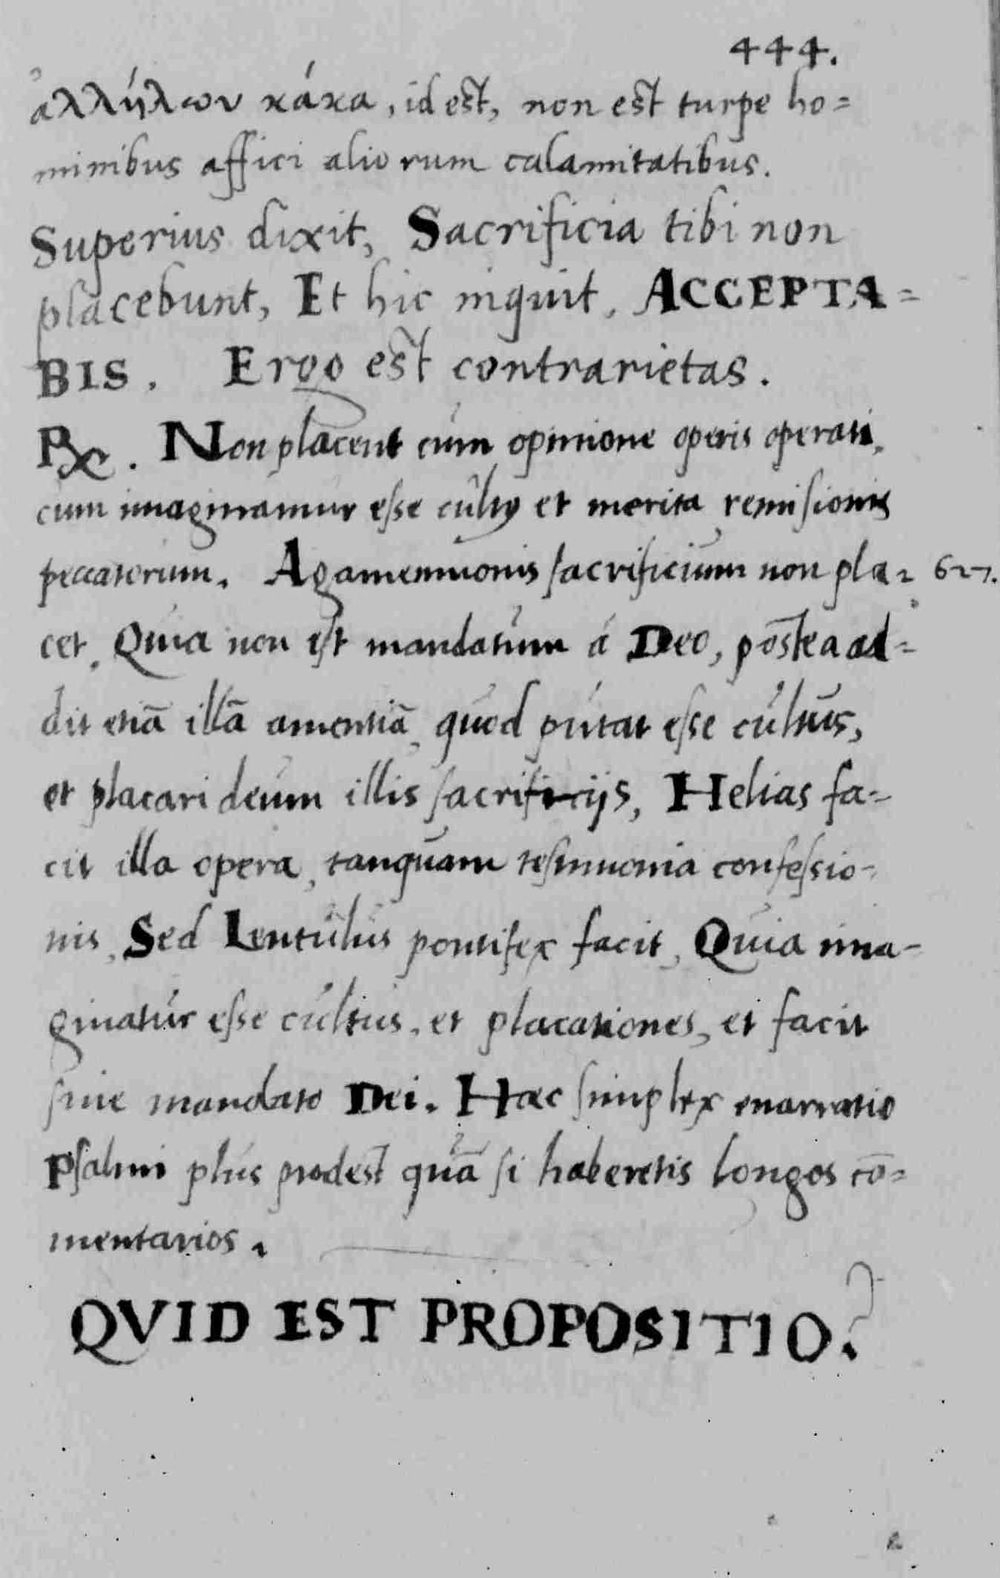 444.
ἀλλήλων κάκα, id est, non est turpe ho=
minibus affici aliorum calamitatibus.
Superius dixit, Sacrificia tibi non
placebunt, Et hic inquit, ACCEPTA=
BIS. Ergo est contrarietas.
℞. Non placent cum opinione operis operati,
cum imaginamur esse cultų et merita remisionis
peccatorum. Agamemnonis sacrificium non pla= 627.
cet, Quia non est mandatum á Deo, postea ad=
dit etiā illā amentiā, quod putat esse cultus,
et placari deum illis sacrificijs, Helias fa=
cit illa opera, tanquam testimonia confessio=
nis, Sed Lentulus pontifex facit, Quia ima=
ginatur esse cultus, et placationes, et facit
sine mandato Dei. Haec simplex enarratio
Psalmi plus prodest quā si haberetis longos cō=
mentarios.
QVID EST PROPOSITIO?